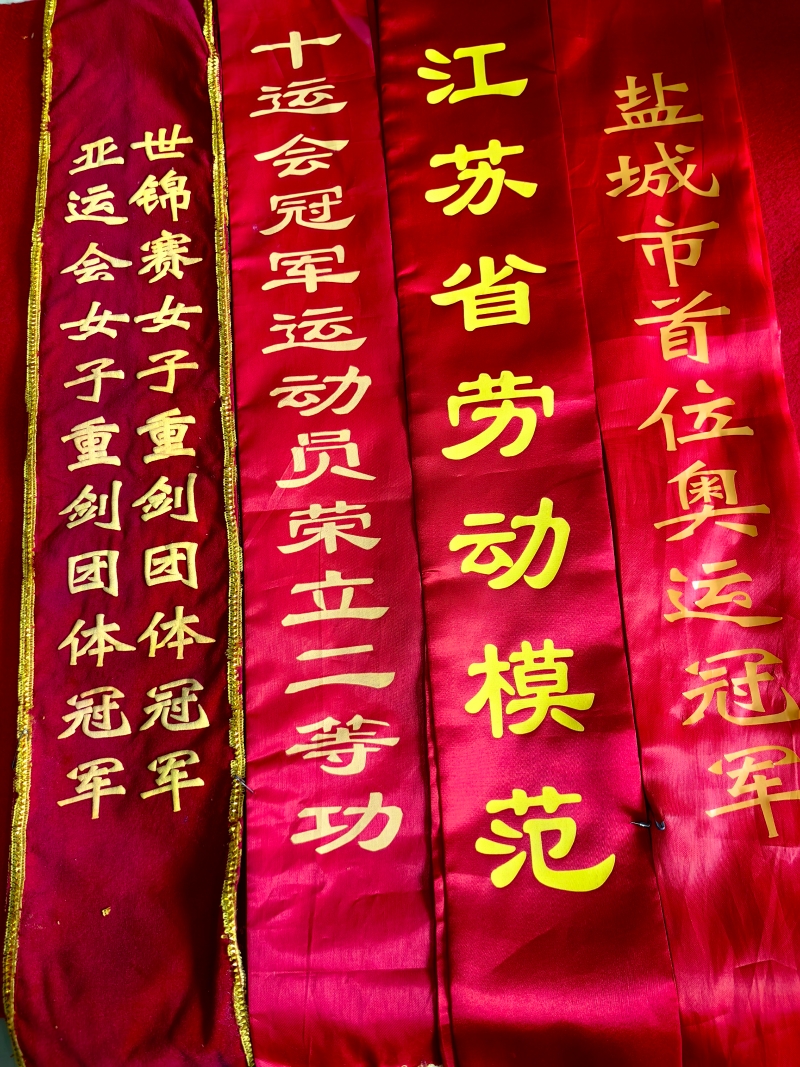 世锦赛女子重剑团体冠军
亚运会女子重剑团体冠军
十运会冠军运动员荣立二等功
江苏省劳动模范
盐城市首位奥运冠军